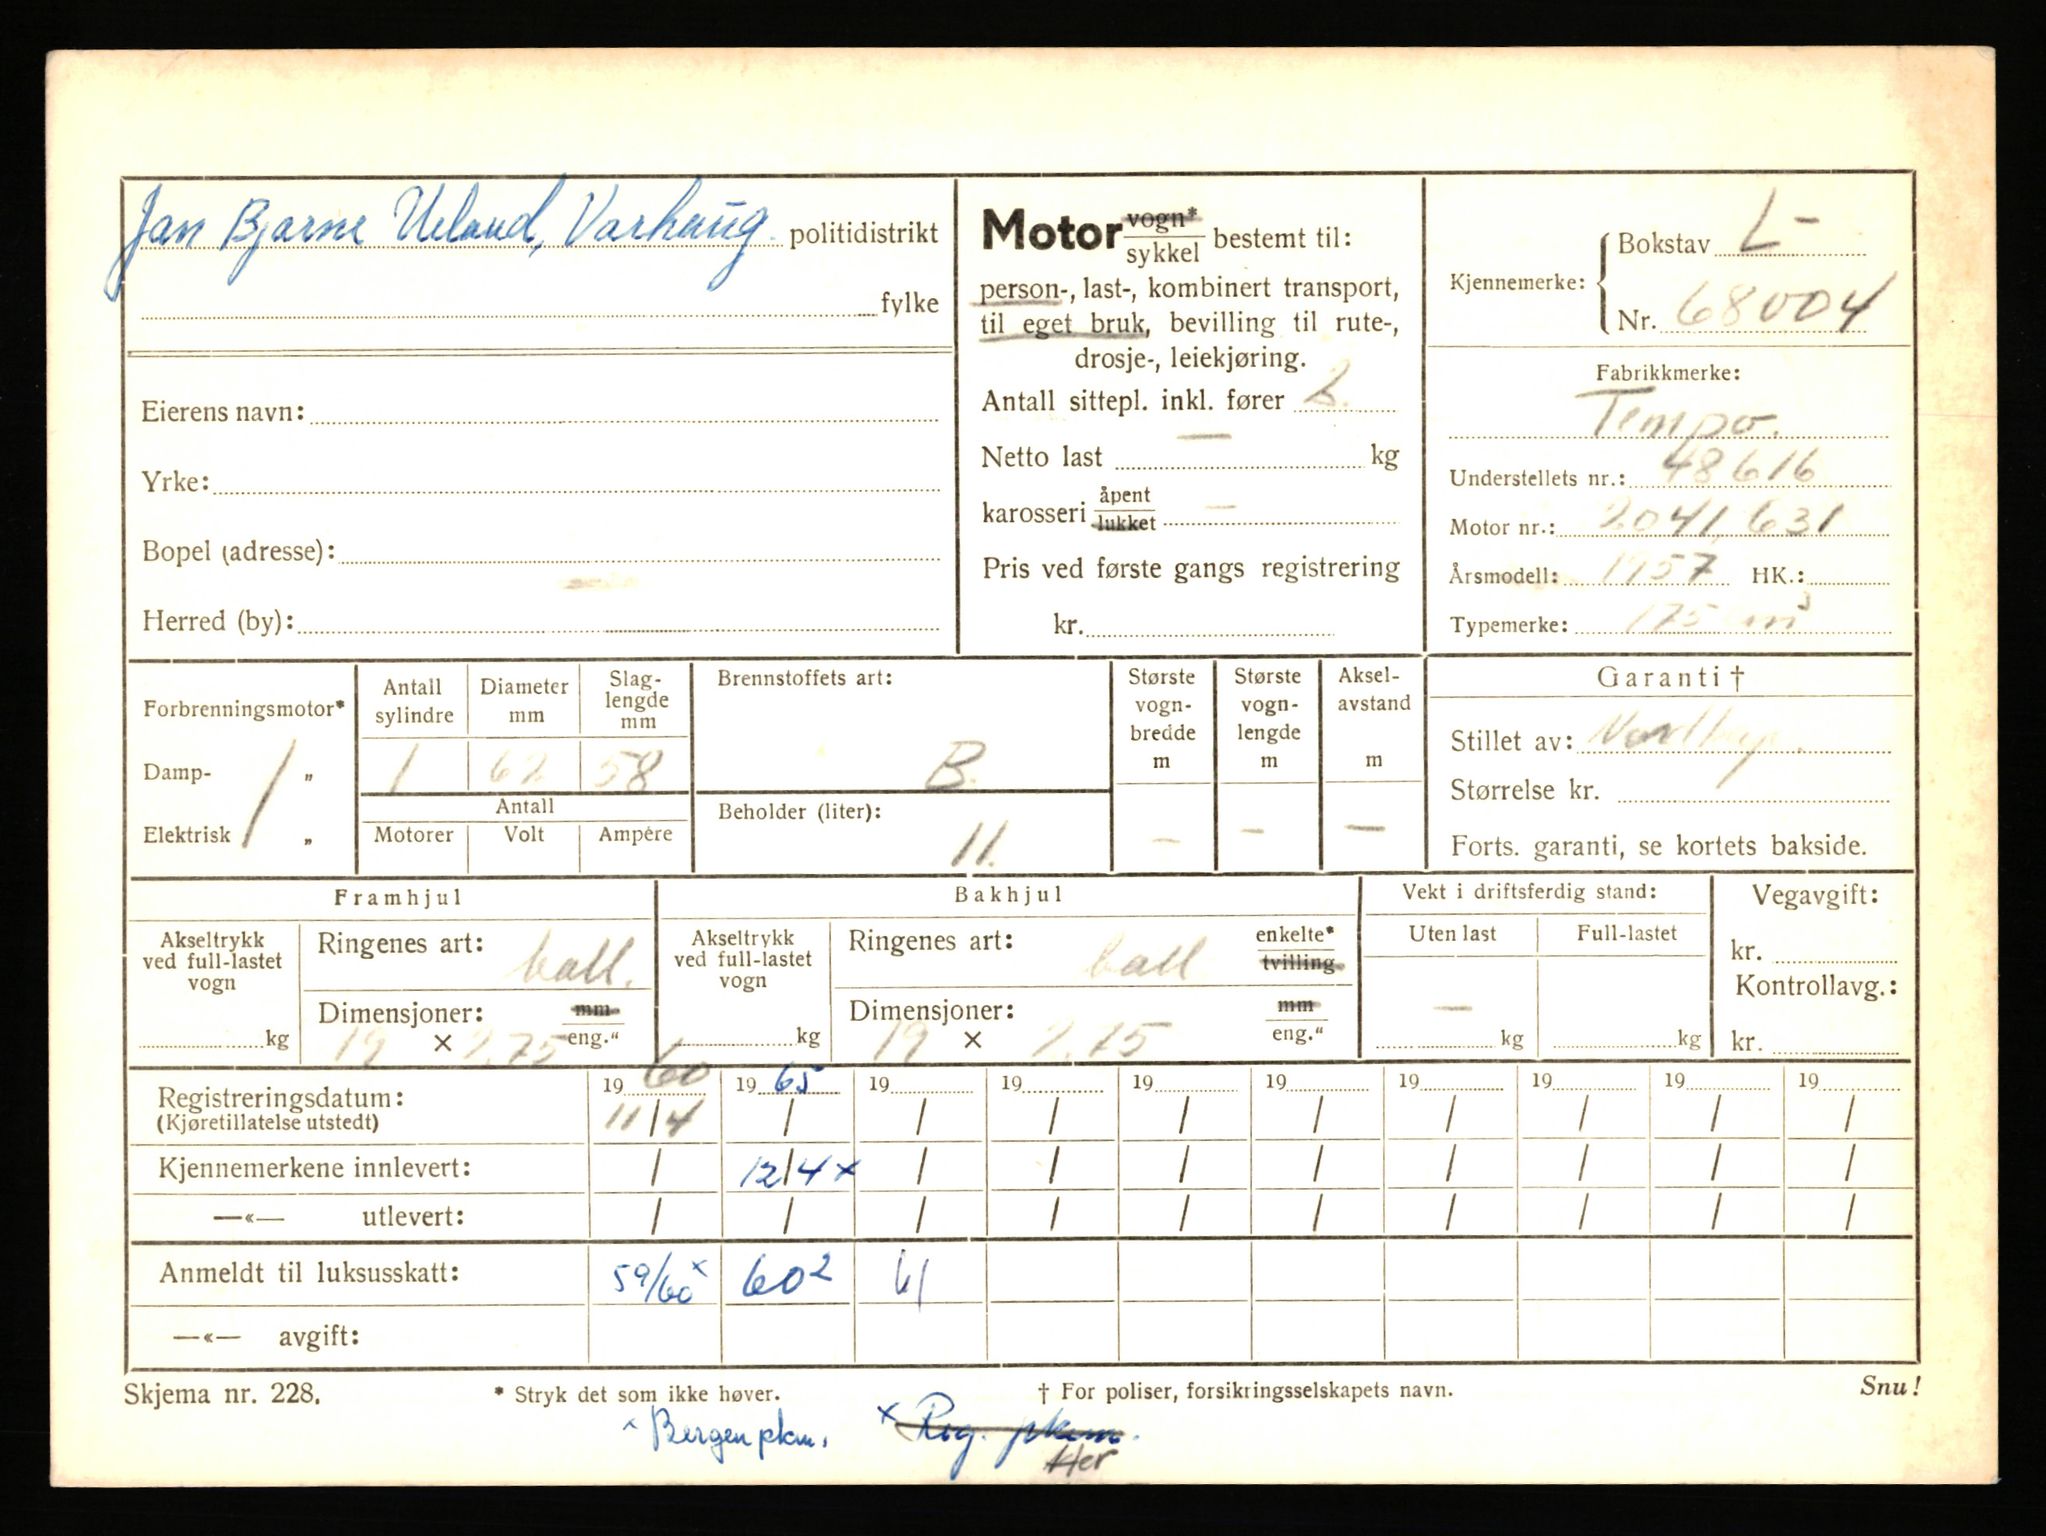 Jan Bjarne Ueland, Varhaug. politidistrikt
fylke
Eierens navn:
Yrke:
Bopel (adresse):
Herred (by):
Motor vogn*
sykkel bestemt til:
person-, last-, kombinert transport,
til eget bruk, bevilling til rute-,
drosje-, leiekjøring.
Antall sittepl. inkl. fører 2.
Netto last — kg
karosseri åpent
lukket —
Pris ved første gangs registrering
kr.
Kjennemerke: Bokstav L-
Nr. 68004
Fabrikkmerke:
Tempo.
Understellets nr.: 48616
Motor nr.: 2041,631
Årsmodell: 1957 HK.:
Typemerke: 175 cm³
Forbrenningsmotor*
Damp- "
Elektrisk "
Antall sylindre Diameter mm Slag-lengde mm
1 62 58
Antall
Motorer Volt Ampére
Brennstoffets art:
B.
Beholder (liter):
11.
Største vogn-bredde m
—
Største vogn-lengde m
—
Aksel-avstand m
—
Garanti †
Stillet av:
Størrelse kr.
Forts. garanti, se kortets bakside.
Framhjul
Akseltrykk ved full-lastet vogn
kg
Ringenes art: ball.
Dimensjoner: mm
19 × 2.75 eng."
Bakhjul
Akseltrykk ved full-lastet vogn
kg
Ringenes art: ball enkelte*
tvilling
Dimensjoner: mm
19 × 2.75 eng."
Vekt i driftsferdig stand:
Uten last Full-lastet
— kg kg
Vegavgift:
kr.
Kontrollavg.:
kr.
19 60 19 65 19 19 19 19 19 19 19 19
Registreringsdatum:
(Kjøretillatelse utstedt) 11/4 / / / / / / / / /
Kjennemerkene innlevert: / 12/4 x / / / / / / / /
—«— utlevert: / / / / / / / / / /
Anmeldt til luksusskatt: 59/60 x 60² 61
—«— avgift:
Skjema nr. 228. * Stryk det som ikke høver. † For poliser, forsikringsselskapets navn. Snu!
x Bergen pkm. x Reg. pkm.
Her